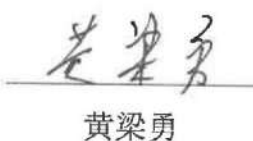 黄梁勇
黄梁勇